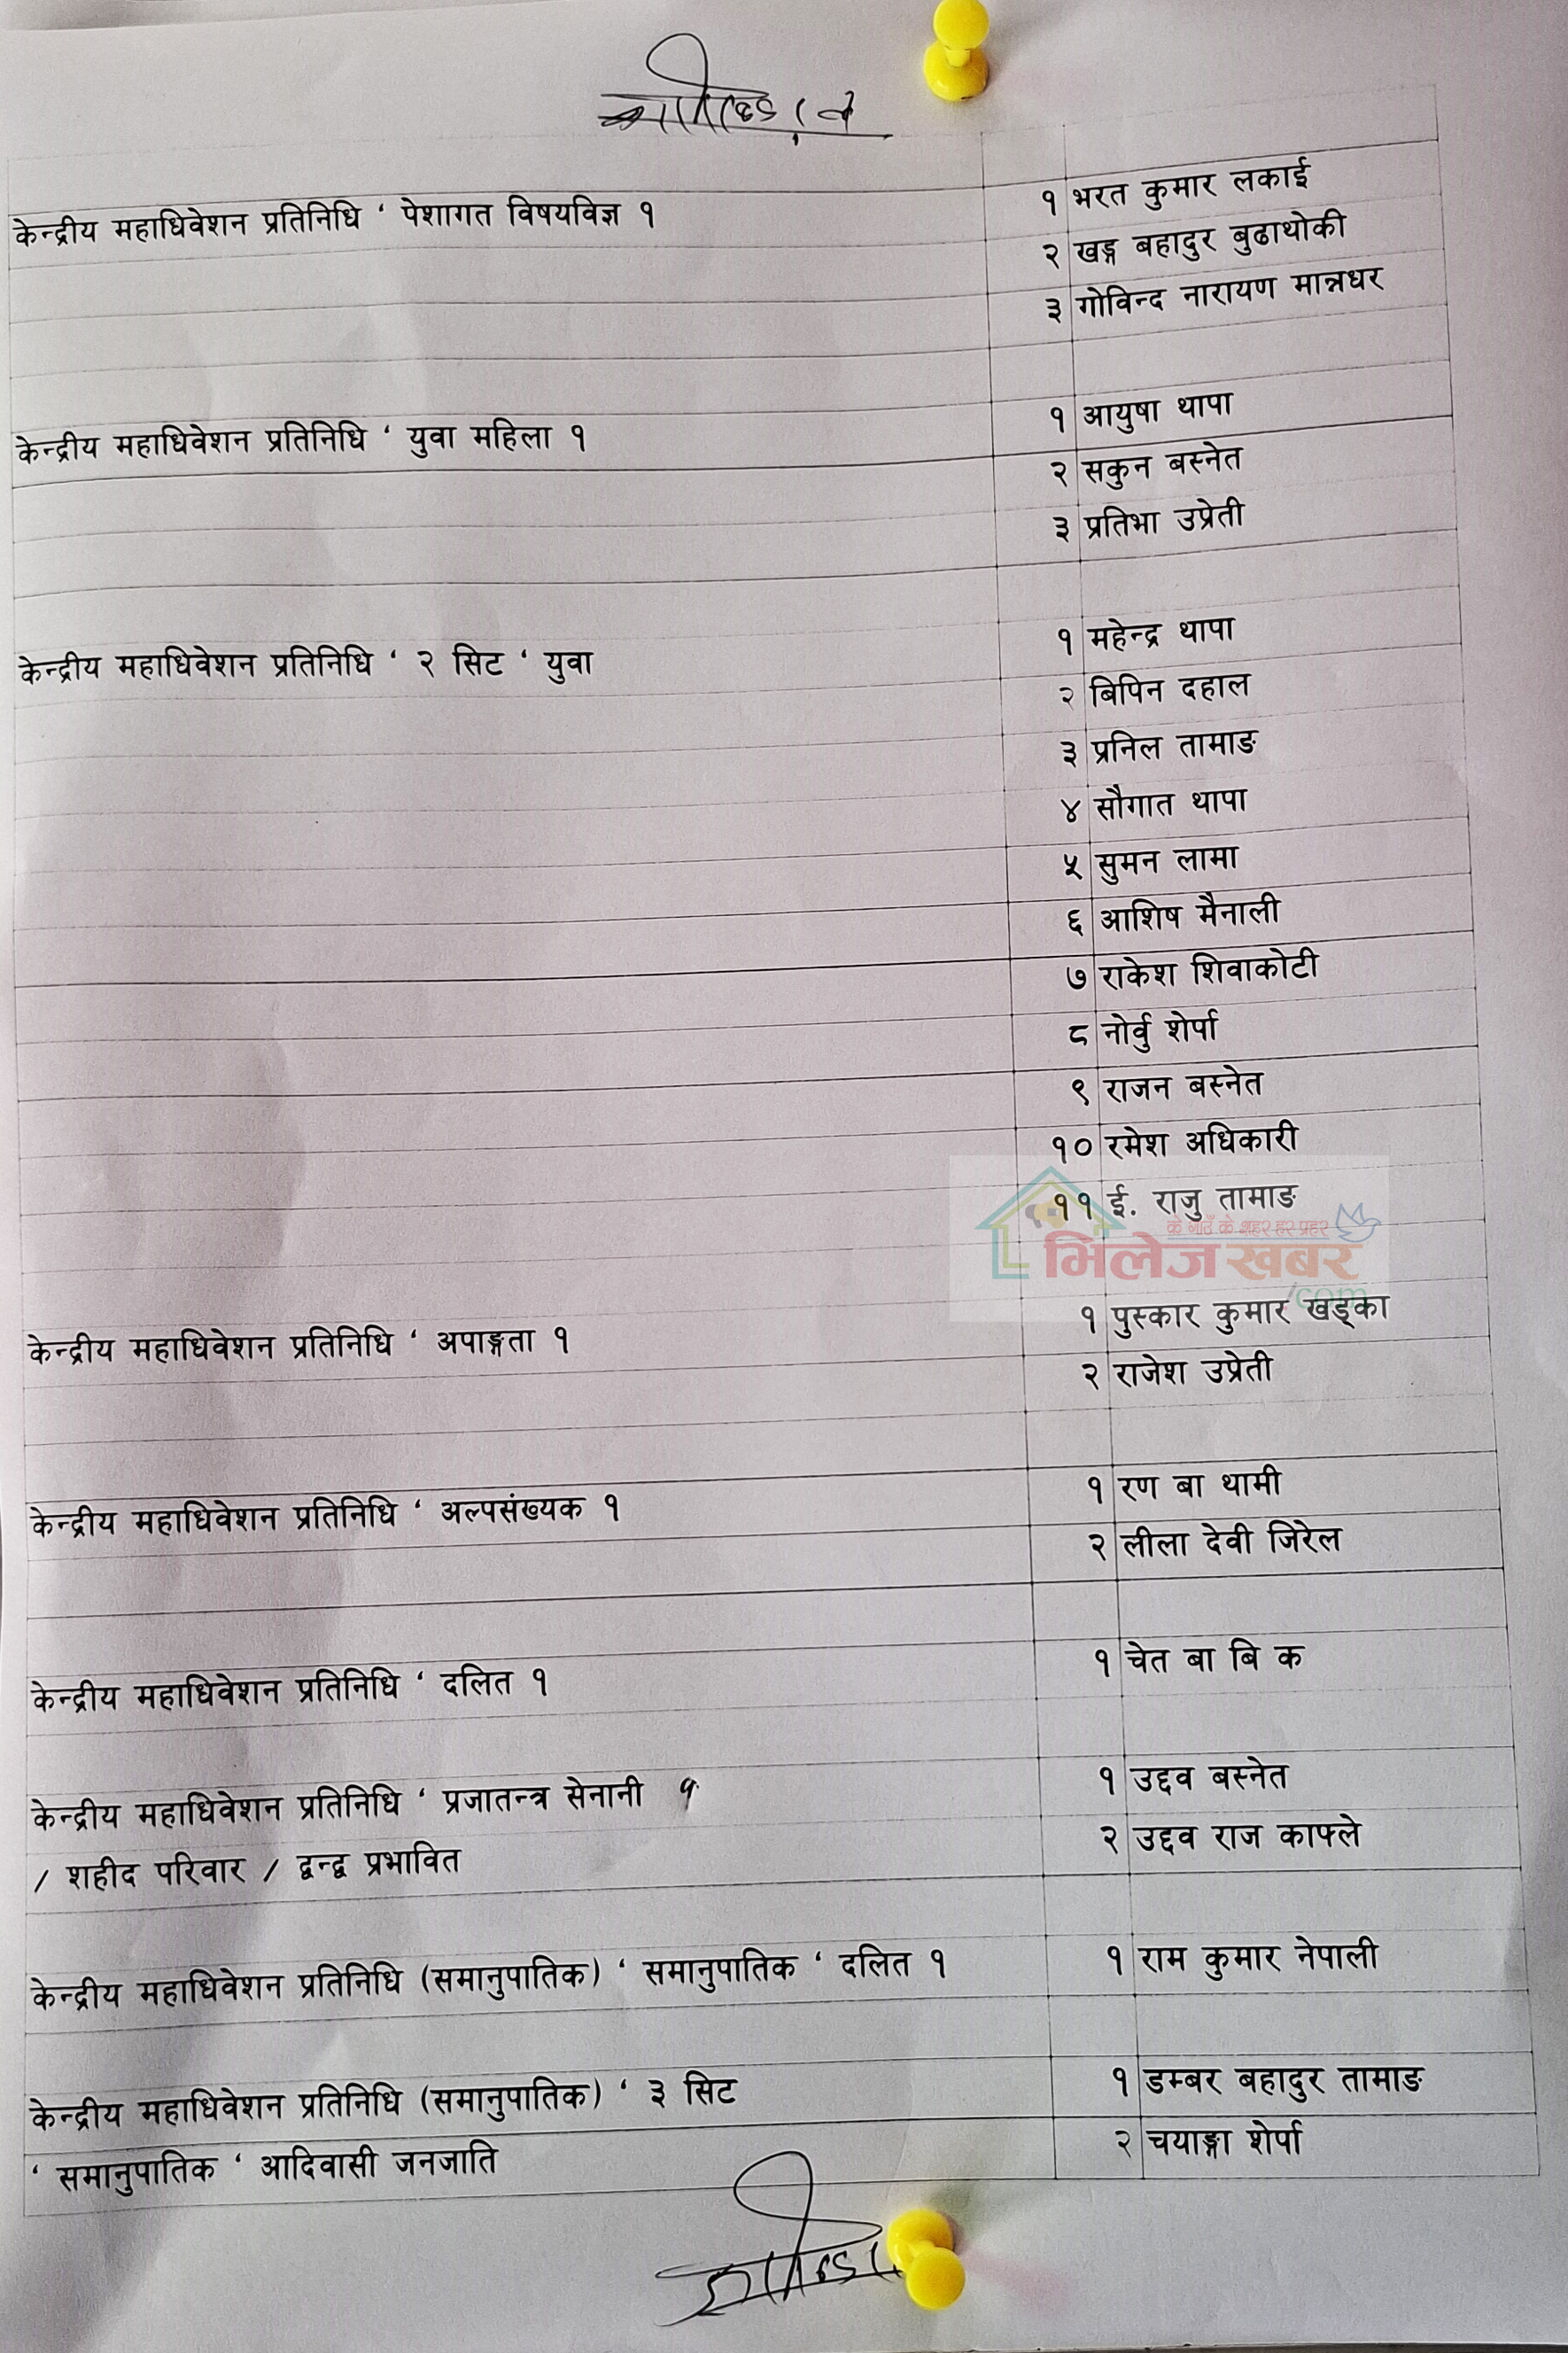 १ भरत कुमार लकाई
केन्द्रीय महाधिवेशन प्रतिनिधि ‘ पेशागत विषयविज्ञ १
२ खड्ग बहादुर बुढाथोकी
३ गोविन्द नारायण मान्नधर
१ आयुषा थापा
केन्द्रीय महाधिवेशन प्रतिनिधि ‘ युवा महिला १
२ सकुन बस्नेत
३ प्रतिभा उप्रेती
१ महेन्द्र थापा
केन्द्रीय महाधिवेशन प्रतिनिधि ‘ २ सिट ‘ युवा
२ बिपिन दहाल
३ प्रनिल तामाङ
४ सौगात थापा
५ सुमन लामा
६ आशिष मैनाली
७ राकेश शिवाकोटी
८ नोर्वु शेर्पा
९ राजन बस्नेत
१० रमेश अधिकारी
११ ई. राजु तामाङ
के गाउँ के शहर हर प्रहर
भिलेज खबर
.com
१ पुस्कार कुमार खड्का
केन्द्रीय महाधिवेशन प्रतिनिधि ‘ अपाङ्गता १
२ राजेश उप्रेती
१ रण बा थामी
केन्द्रीय महाधिवेशन प्रतिनिधि ‘ अल्पसंख्यक १
२ लीला देवी जिरेल
१ चेत बा बि क
केन्द्रीय महाधिवेशन प्रतिनिधि ‘ दलित १
१ उद्दव बस्नेत
केन्द्रीय महाधिवेशन प्रतिनिधि ‘ प्रजातन्त्र सेनानी १
२ उद्दव राज काफ्ले
/ शहीद परिवार / द्वन्द्व प्रभावित
केन्द्रीय महाधिवेशन प्रतिनिधि (समानुपातिक) ‘ समानुपातिक ‘ दलित १
१ राम कुमार नेपाली
केन्द्रीय महाधिवेशन प्रतिनिधि (समानुपातिक) ‘ ३ सिट
१ डम्बर बहादुर तामाङ
‘ समानुपातिक ‘ आदिवासी जनजाति
२ चयाङ्गा शेर्पा